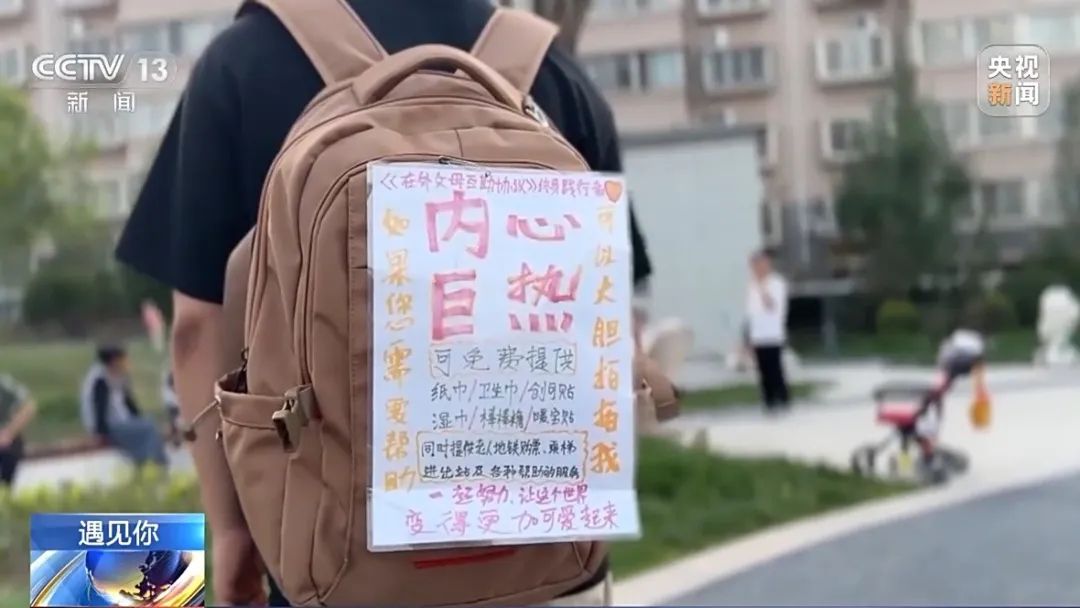 CCTV 13
新闻
央视
新闻
《在外父母互助协议》终身践行者
如果您需要帮助
内心
巨热
可以大胆拍拍我
可免费提供
纸巾/卫生巾/创可贴
湿巾/棒棒糖/暖宝贴
同时提供老人地铁购票、乘梯
进出站及各种帮助的服务
一起努力、让这个世界
变得更加可爱起来
遇见你